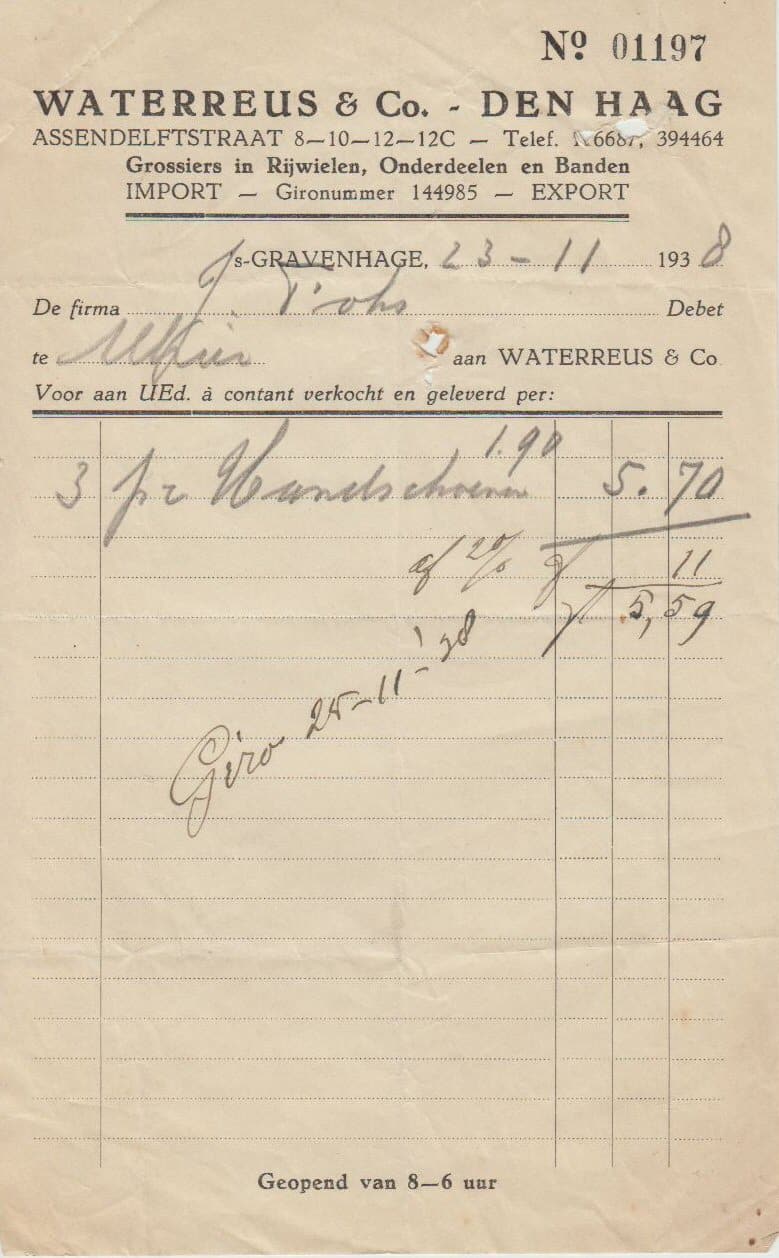 Nº 01197
WATERREUS & Co. - DEN HAAG
ASSENDELFTSTRAAT 8—10—12—12C — Telef. 394464
Grossiers in Rijwielen, Onderdeelen en Banden
IMPORT — Gironummer 144985 — EXPORT
's-GRAVENHAGE, 23-11 1938
De firma J. Debet
te aan WATERREUS & Co
Voor aan UEd. à contant verkocht en geleverd per:
1.90
3 pr Handschoenen 5.70
af 2% f 11
f 5,59
Giro 25-11-'38
Geopend van 8—6 uur